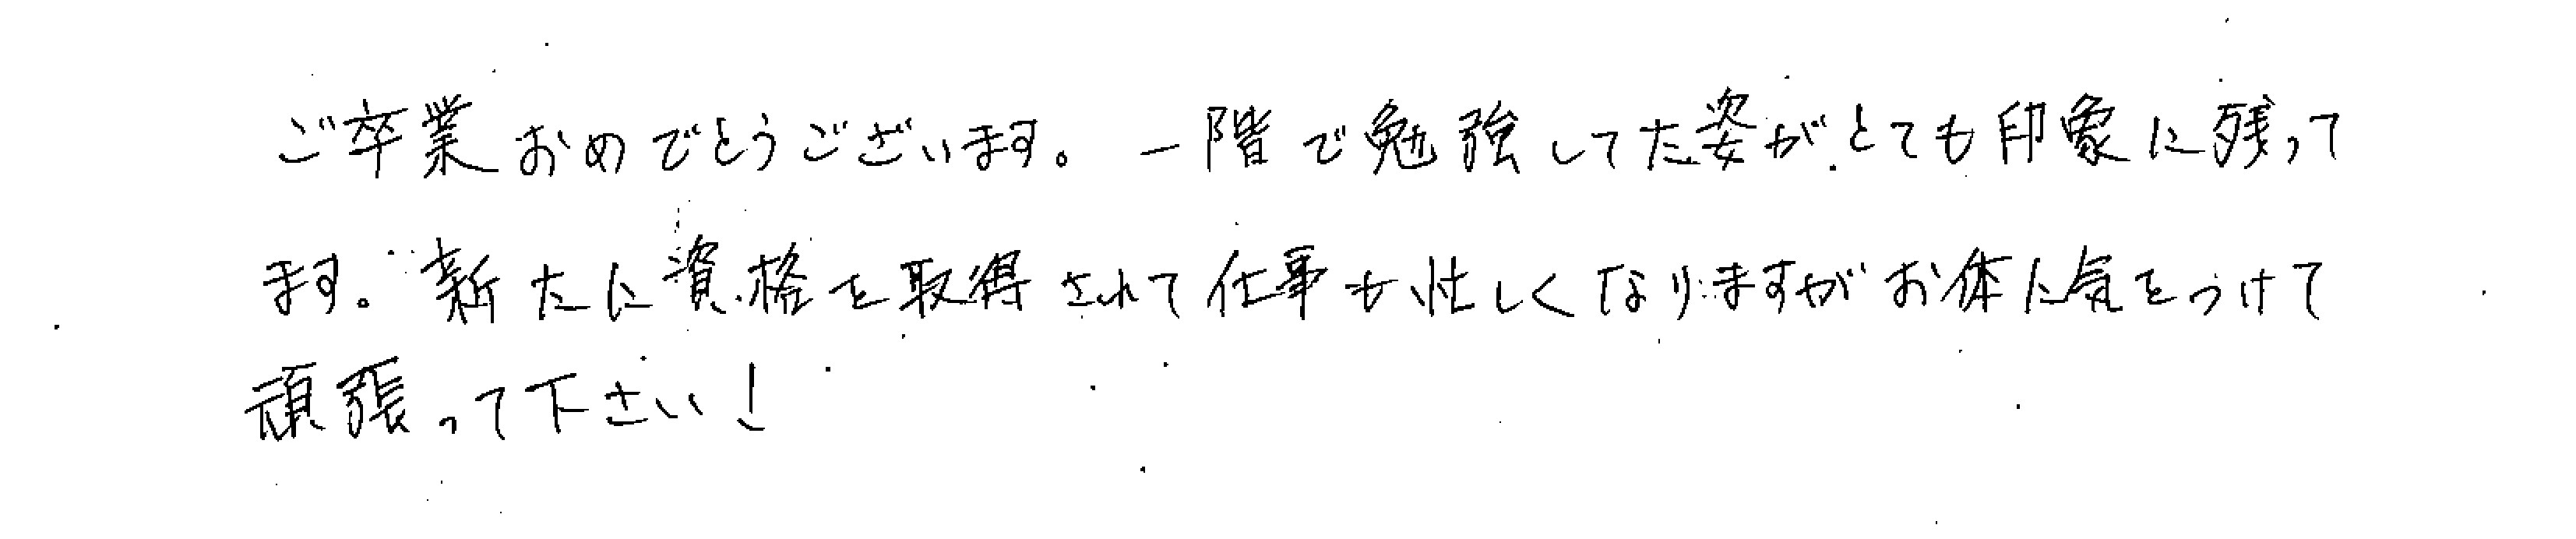 ご卒業おめでとうございます。一階で勉強してた姿がとても印象に残って
ます。新たに資格を取得されて仕事も忙しくなりますがお体に気をつけて
頑張って下さい!